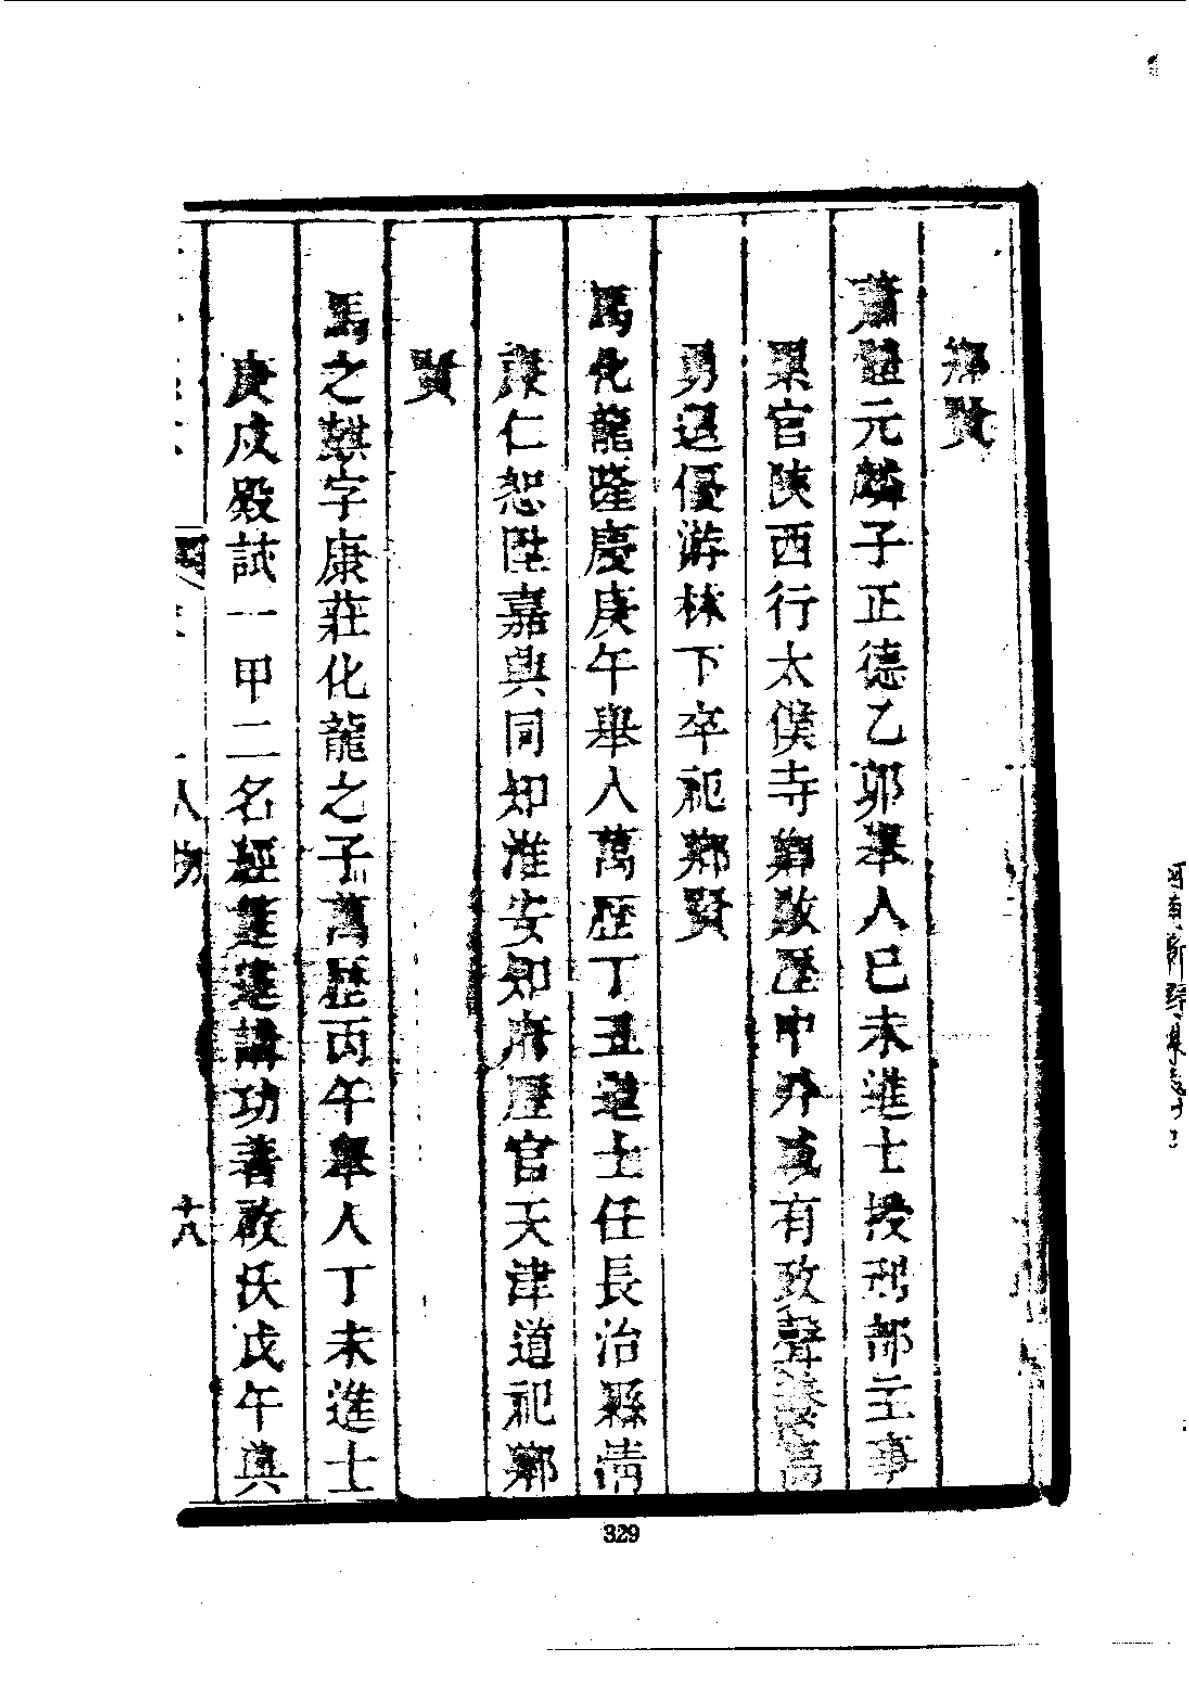 鄉賢
蕭元麟子正德乙卯舉人巳未進士授刑部主事
累官陝西行太僕寺卿敭歷中外眞有政聲高
勇退優游林下卒祀鄉賢
馬化龍隆慶庚午舉人萬歷丁丑進士任長治縣清
廉仁恕陞嘉興同知淮安知府歷官天津道祀鄉
賢
馬之騏字康莊化龍之子萬歷丙午舉人丁未進士
庚戌殿試一甲二名經筵進講功著啟沃戊午典
人物
十八
329